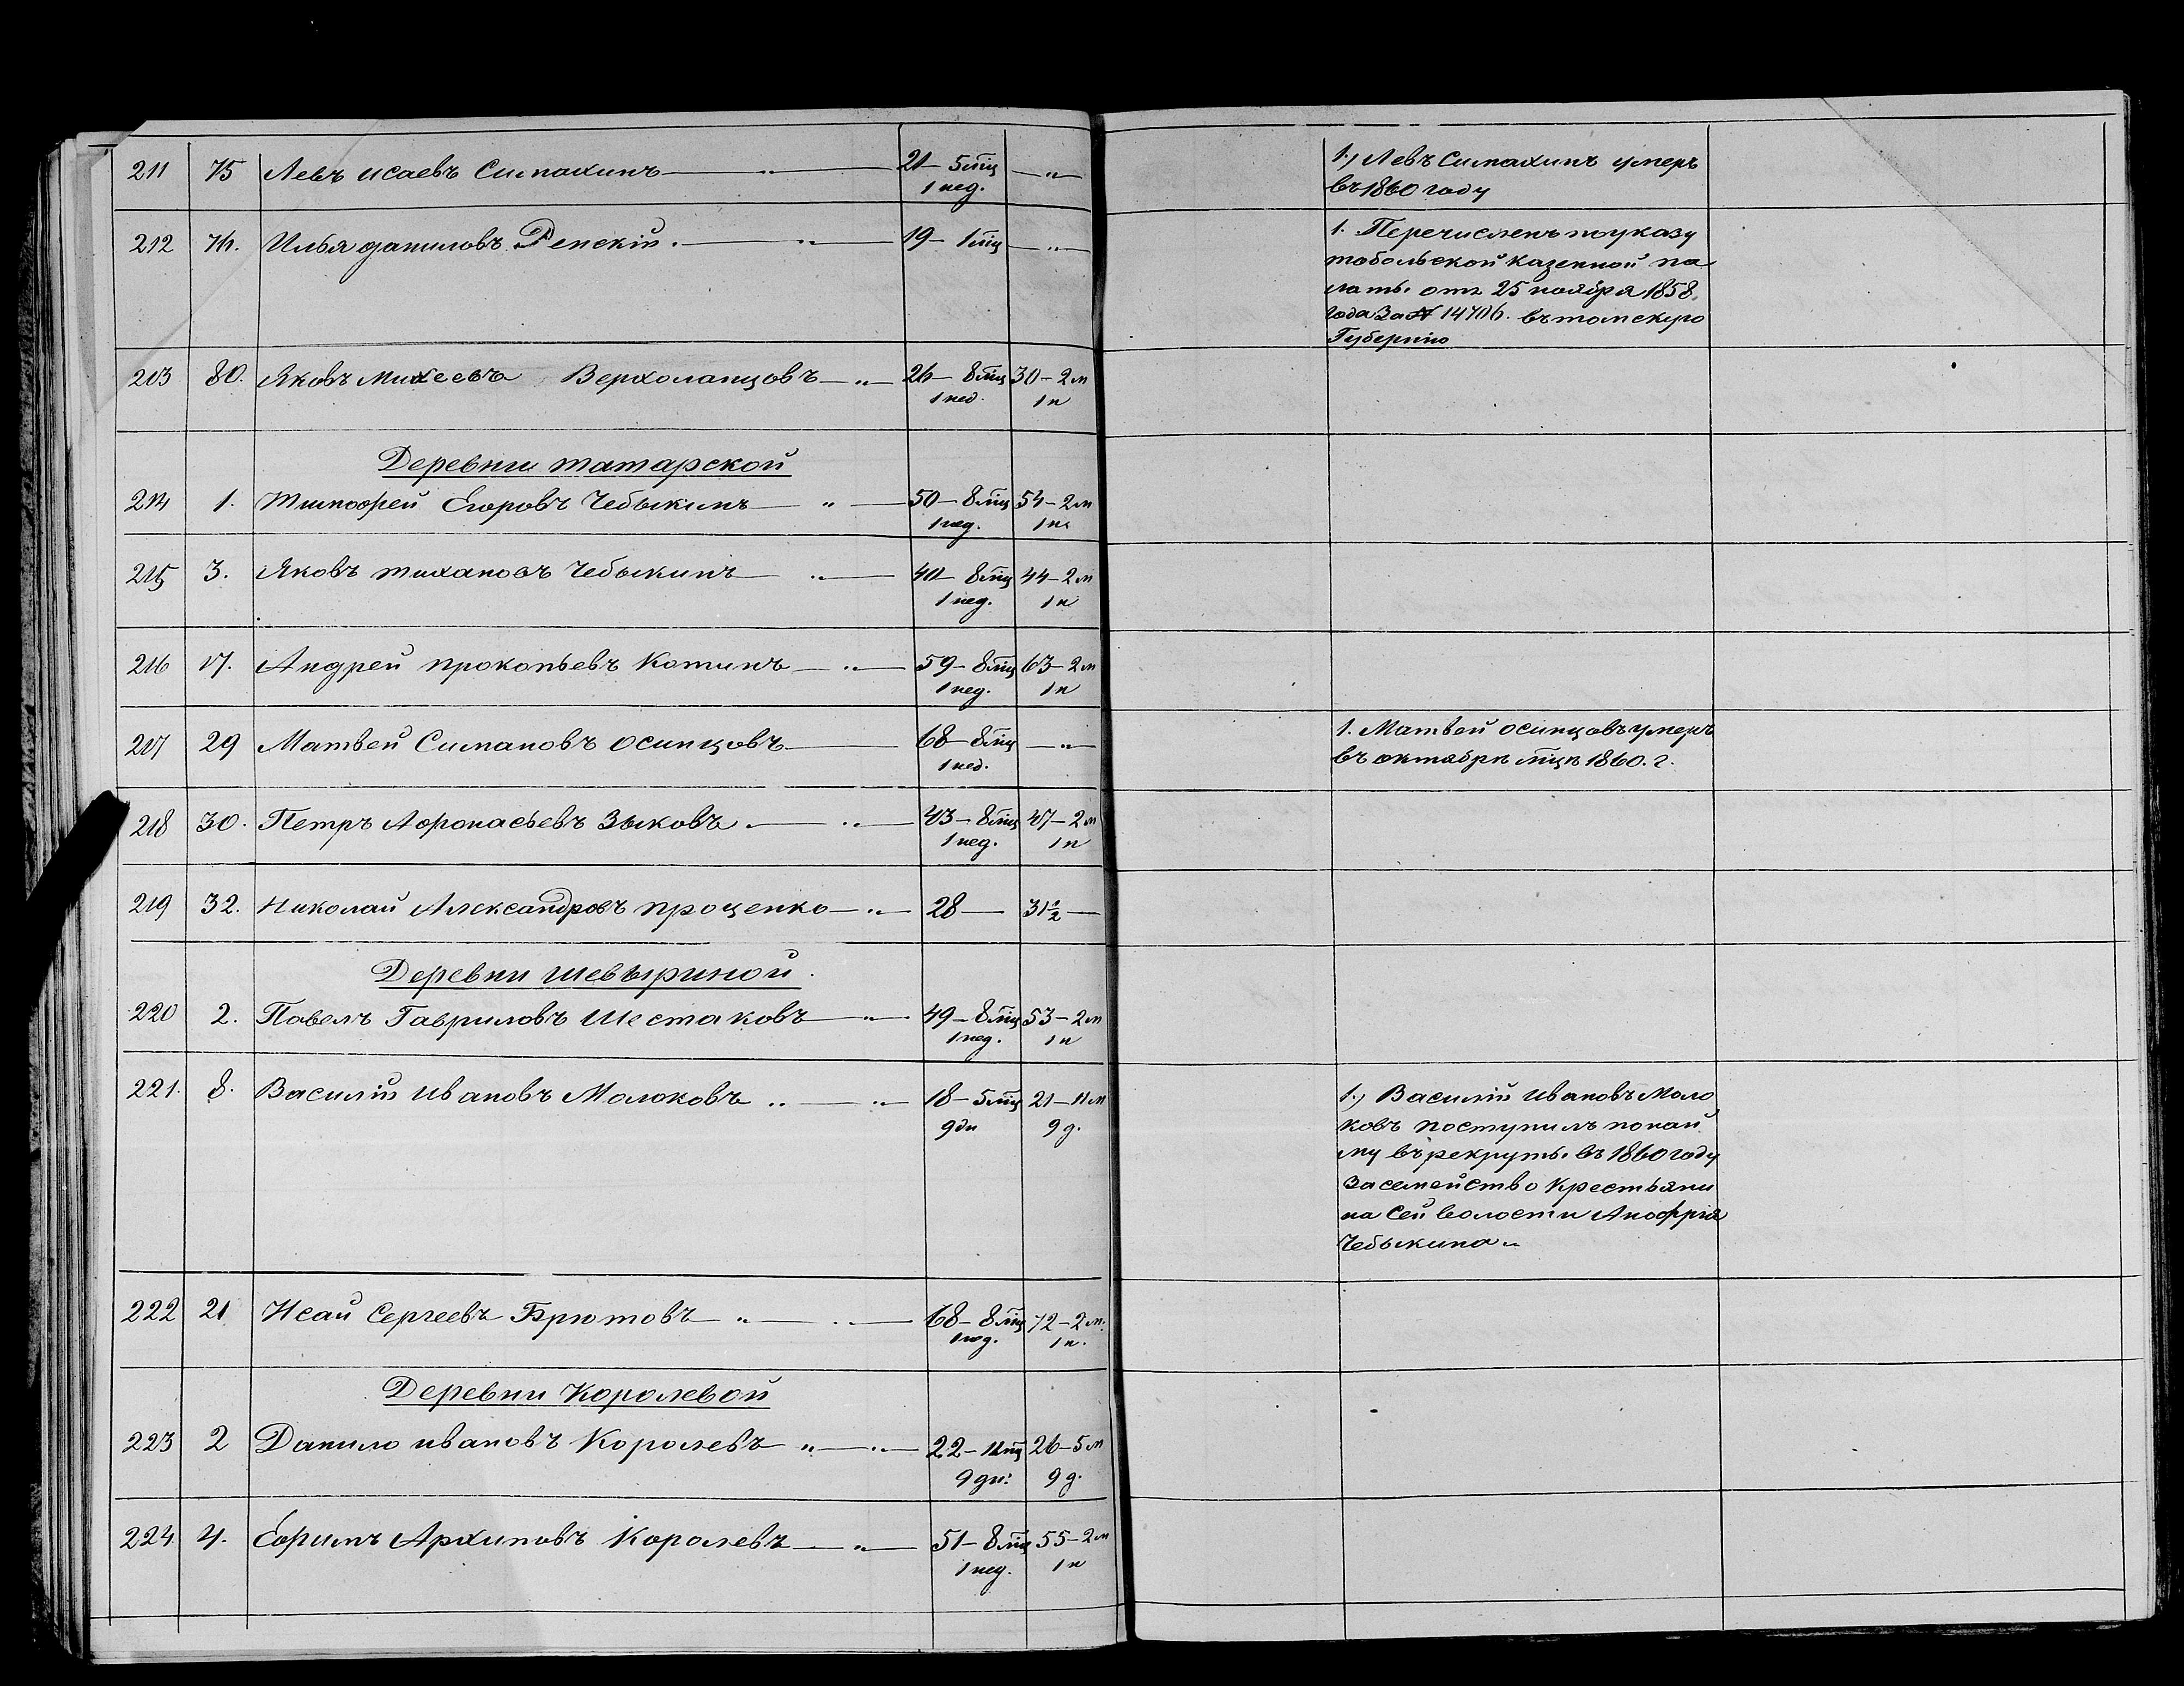 211 75 Левъ исаевъ Симахинъ — „ — 21 — 5 мц — „ — 1., Левъ Симахинъ умеръ
1 нед. въ 1860 году
212 76. Илья даниловъ Ренскій. — „ — 19 — 1 мц — „ — 1. Перечисленъ по указу
тобольской казенной па
латы отъ 25 ноября 1858.
года За № 14706. въ томскую
Губернію
213 80. Яковъ михеевъ Верхоланцовъ — „ — 26 — 8 мц 30 — 2 м
1 нед. 1 н
Деревни татарской
214 1. Тимофей Егоровъ Чебыкинъ — „ — 50 — 8 мц 54 — 2 м
1 нед. 1 н.
215 3. Яковъ тихановъ Чебыкинъ — „ — 40 — 8 мц 44 — 2 м
1 нед. 1 н
216 17. Андрей прокопьевъ Котинъ — „ — 59 — 8 мц 63 — 2 м
1 нед. 1 н
217 29 Матвей Симановъ осинцовъ — 68 — 8 мц — „ — 1. Матвей осинцовъ умеръ
1 нед. въ октябрѣ мцѣ 1860. г.
218 30. Петръ Афонасьевъ Зыковъ. — „ — 43 — 8 мц 47 — 2 м
1 нед. 1 н
219 32. Николай Александровъ проценко — „ — 28 — 31 1/2 —
Деревни шевыриной.
220 2. Павелъ Гавриловъ Шестаковъ — „ — 49 — 8 мц 53 — 2 м
1 нед. 1 н
221. 8. Василій Ивановъ Молоковъ „ — „ — 18 — 5 мц 21 — 11 м 1., Василій Ивановъ Моло
9 дн 9 д. ковъ поступилъ по най
му въ рекруты въ 1860 году
За семейство Крестьяни
на сей волости Аноффрія
Чебыкина „
222 21 Исай Сергеевъ Брютовъ „ — „ — 68 — 8 мц 72 — 2 м.
1 нед. 1 н.
Деревни Королевой
223 2 Данило ивановъ Королевъ „ — „ — 22 — 11 мц 26 — 5 м
9 дн: 9 д.
224 4. Ефимъ Архиповъ Королевъ — „ — 51 — 8 мц 55 — 2 м
1 нед. 1 н